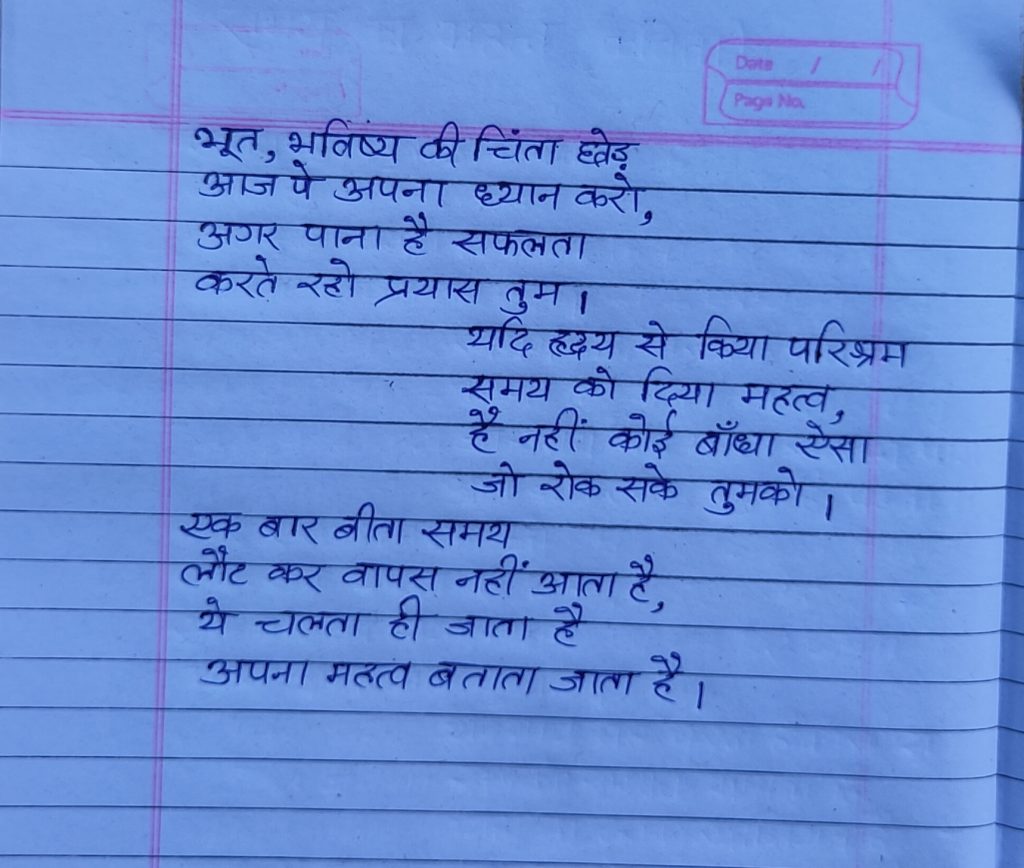 Date / /
Page No.
भूत, भविष्य की चिंता छोड़
आज पे अपना ध्यान करो,
अगर पाना है सफलता
करते रहो प्रयास तुम।
यदि हृदय से किया परिश्रम
समय को दिया महत्व,
है नहीं कोई बाँधा ऐसा
जो रोक सके तुमको।
एक बार बीता समय
लौट कर वापस नहीं आता है,
ये चलता ही जाता है
अपना महत्व बताता जाता है।